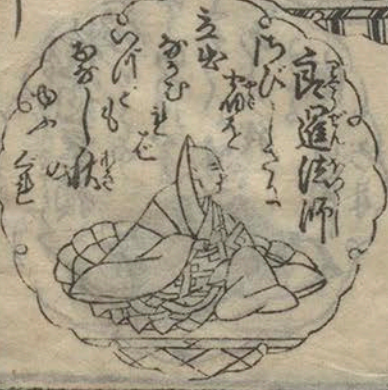 良暹法師
さびしさに
宿を
立出
ながむ
れば
いづこも
おなし秋
の
ゆふ
ぐれ